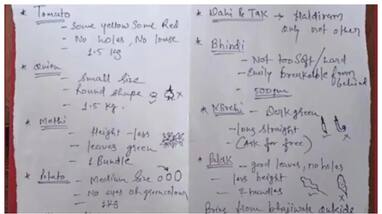 * Tomato
- Some yellow Some Red
- No holes, No loose
1.5 kg
* Onion
- Small Size
- Round shape
- 1.5 kg.
* Methi
- Height - less
- leaves green
- 1 Bundle
* Potato - Medium Size
- No eyes or green colour
- 1kg
* Dahi & TAK → Haldiram
only not other
* Bhindi
- Not too Soft / hard
- Easily breakable from behind
- 500gm
* Mirchi - Dark green
- long straight
(Ask for free)
* Palak - good leaves, no holes
- less height
- 2 bundles
Bring from bhajiwala outside